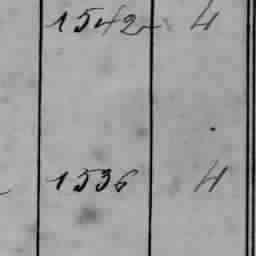 1542 4
1536 4